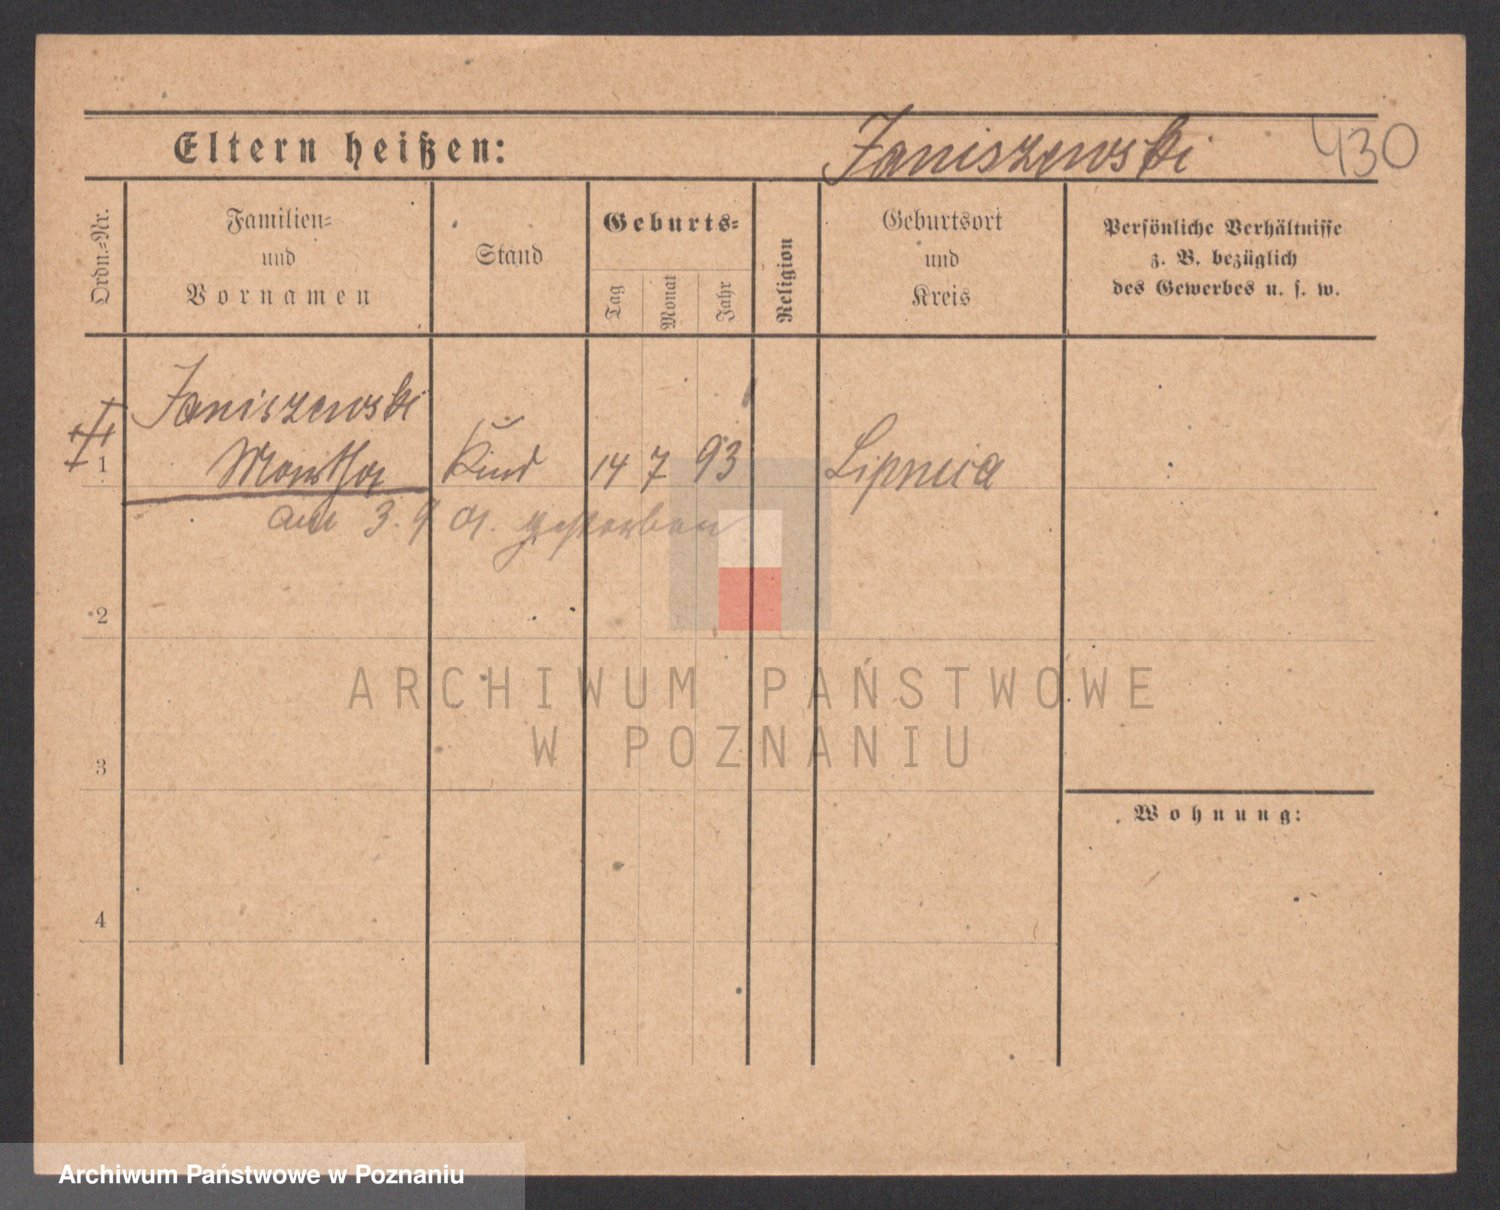 Eltern heißen: Janiszewski 430
Ordn.-Nr.
Familien-
und
Vornamen
Stand
Geburts-
Tag
Monat
Jahr
Religion
Geburtsort
und
Kreis
Persönliche Verhältnisse
z. B. bezüglich
des Gewerbes u. s. w.
Janiszewski
1 Martha Kind 14 7 93 Lipnica
am 3. 9 01. gestorben
2
ARCHIWUM PAŃSTWOWE
W POZNANIU
3
Wohnung:
4
Archiwum Państwowe w Poznaniu